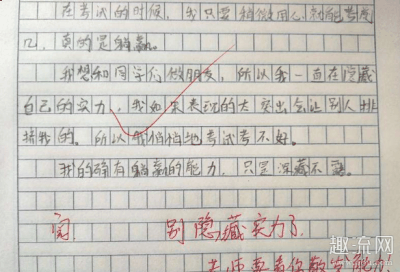 在考试的时候，我只要稍微用心，就能考度
几，真的是躺赢。
我想和同学们做朋友，所以我一直在隐藏
自己的实力，我如果表现的太突出会让别人排
挤我的。所以我悄悄地考试考不好。
我的确有躺赢的能力，只是深藏不露。
阅 别隐藏实力了，
老师要看你散发能力！
趣充网